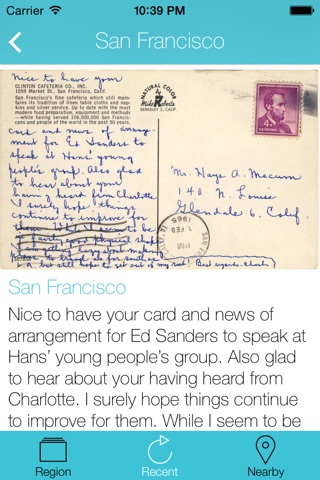 Carrier 10:39 PM
San Francisco
Nice to have your
CLINTON CAFETERIA CO., INC.
1059 Market St., San Francisco, Calif.
San Francisco's fine cafeteria which still maintains its tradition of linen table cloths and napkins and silver service. Up to date with the most modern food preparation, equipment and methods—while having served 106,000,000 San Franciscans and people of the world in the past 50 years.
card and news of arrange-
ment for Ed Sanders to
speak at Hans' young
people's group. Also glad
to hear about your
having heard from Charlotte.
I surely hope things
continue to improve for
them. While I seem to be
in fairly good physical shape
NATURAL COLOR
Mike Roberts
BERKELEY 2, CALIF.
Mr. Haye A. Macurn
140 N. Louise
Glendale 6, Calif.
SAN
PM
1 FEB
1965
San Francisco
Nice to have your card and news of
arrangement for Ed Sanders to speak at
Hans' young people's group. Also glad
to hear about your having heard from
Charlotte. I surely hope things continue
to improve for them. While I seem to be
Region
Recent
Nearby